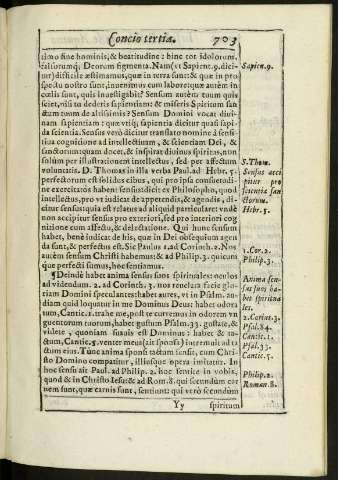 Concio tertia.
703
timo fine hominis, & beatitudine: hinc tot idolorum,
falsorumq; Deorum figmenta. Nam (vt Sapient. 9. dici
tur) difficile æstimamus, quæ in terra sunt: & quæ in pro
spectu nostro sunt, inuenimus cum labore: quæ autem in
cœlis sunt, quis inuestigabit? Sensum autem tuum quis
sciet, nisi tu dederis sapientiam: & miseris Spiritum san
ctum tuum de altissimis? Sensum Domini vocat diui-
nam sapientiam: quæ vtiq; sapientia dicitur quasi sapi-
da scientia. Sensus verò dicitur translato nomine à sensi-
tiua cognitione ad intellectiuam, & scientiam Dei, &
sanctorum: quam docet, & inspirat diuinus spiritus, non
solum per illustrationem intellectus, sed per affectum
voluntatis. D. Thomas in illa verba Paul. ad Hebr. 5.
perfectorum est solidus cibus, qui pro ipsa consuetudi-
ne exercitatos habent sensus: dicit ex Philosopho, quod
intellectus, pro vt iudicat de appetendis, & agendis, di-
citur sensus: quia est relatus ad aliquid particulare: vnde
non accipitur sensus pro exteriori, sed pro interiori cog
nitione cum affectu, & delectatione. Qui hunc sensum
habet, benè iudicat de his, quæ in Dei obsequium agen
da sunt, & perfectus est. Sic Paulus 1. ad Corint. 2. Nos
autem sensum Christi habemus: & ad Philip. 3. quicunq;
que perfecti sumus, hoc sentiamus.
¶ Deindè habet anima sensus suos spirituales: oculos
ad videndum. 2. ad Corinth. 3. nos reuelata facie glo-
riam Domini speculantes: habet aures, vt in Psalm. au-
diam quid loquatur in me Dominus Deus: habet odora
tum, Cantic. 1. trahe me, post te curremus in odorem vn
guentorum tuorum, habet gustum Psalm. 33. gustate, &
videte, quoniam suauis est Dominus: habet & ta-
ctum, Cantic. 5. venter meus (ait sponsa) intremuit ad ta
ctum eius. Tunc anima sponsi tactum sensit, cum Chri-
sto Domino compatitur, illiusque opera imitatur. In
hoc sensu ait Paul. ad Philip. 2. hoc sentite in vobis,
quod & in Christo Iesu: & ad Rom. 8. qui secundùm car
nem sunt, quæ carnis sunt, sentiunt: qui verò secundùm
Yy
spiritum
Sapien. 9.
S. Thom.
Sensus acci
pitur pro
scientia san
ctorum.
Hebr. 5.
1. Cor. 2.
Philip. 3.
Anima sen-
sus suos ha-
bet spiritua
les.
2. Corint. 3.
Psal. 84.
Cantic. 1.
Psal. 33.
Cantic. 5.
Philip. 2.
Roman. 8.